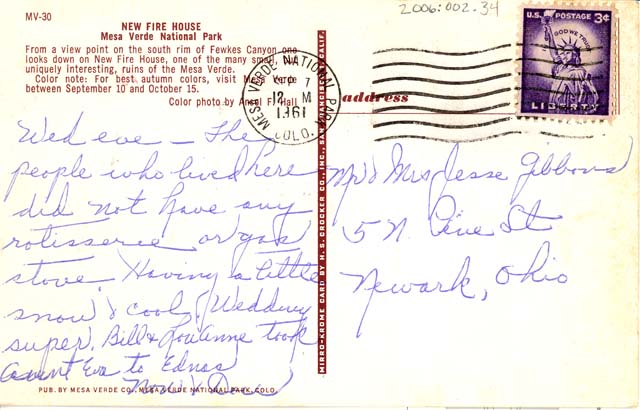 2006:002.34
MV-30
NEW FIRE HOUSE
Mesa Verde National Park
From a view point on the south rim of Fewkes Canyon one
looks down on New Fire House, one of the many small, but
uniquely interesting, ruins of the Mesa Verde.
Color note: For best autumn colors, visit Mesa Verde
between September 10 and October 15.
Color photo by Ansel F. Hall
MESA VERDE NATIONAL PARK
7
12 M
1961
COLO.
address
U.S. POSTAGE 3¢
IN GOD WE TRUST
LIBERTY
Wed eve - The
people who lived here
did not have any
rotisserie or gas
stove. Having a little
snow & cool. Wedding
super. Bill & LouAnne took
Aunt Eva to Ednas
Mom & Dad
Mr & Mrs Jesse Gibbons
5 N. Pine St
Newark, Ohio
MIRRO-KROME CARD BY H. S. CROCKER CO., INC., SAN FRANCISCO, CALIF.
PUB. BY MESA VERDE CO., MESA VERDE NATIONAL PARK, COLO.